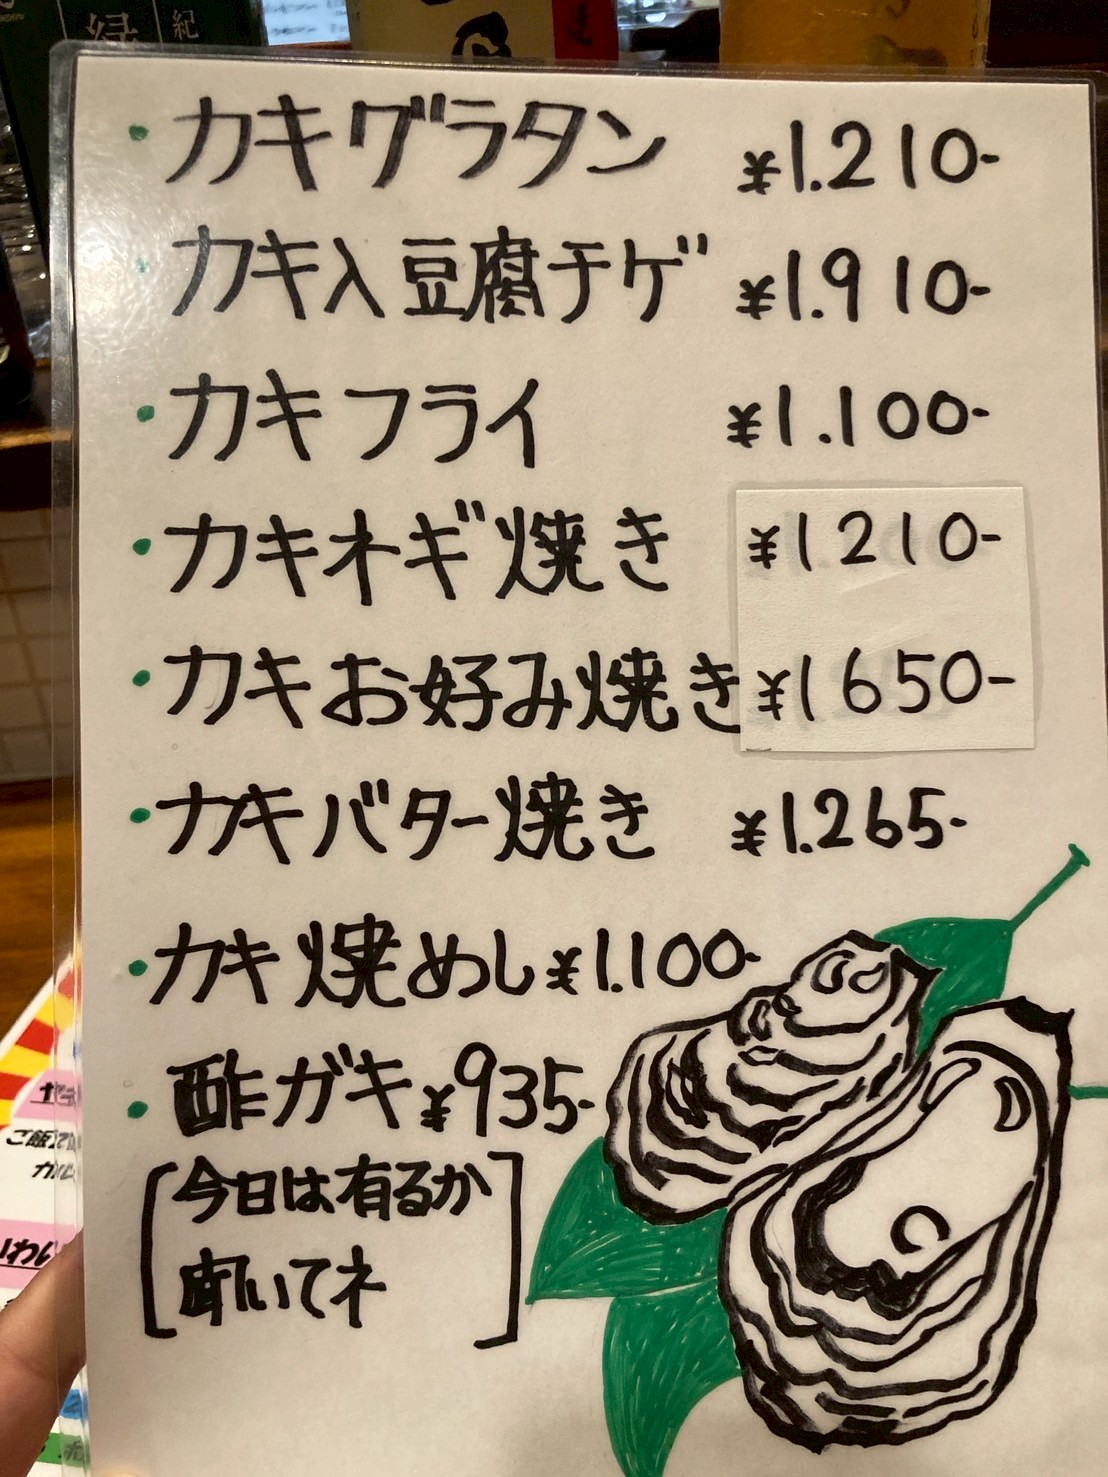 緑
紀
・カキグラタン ¥1.210-
カキ入豆腐チゲ ¥1.910-
・カキフライ ¥1.100-
・カキネギ焼き ¥1210-
・カキお好み焼き ¥1650-
・カキバター焼き ¥1.265-
・カキ焼めし ¥1.100-
・酢ガキ ¥935-
[今日は有るか
聞いてネ]